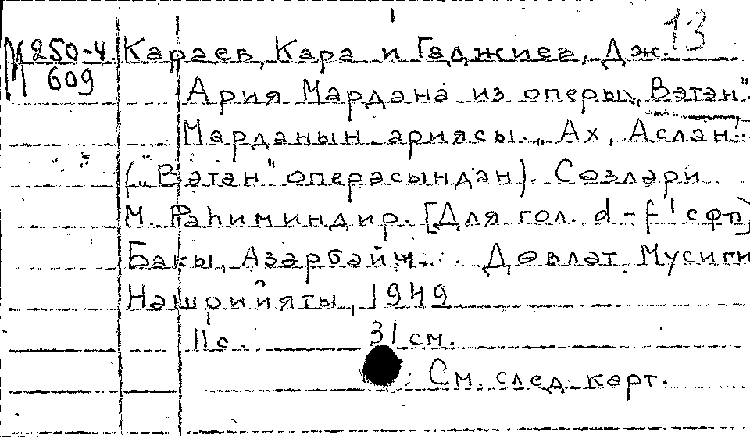 13
М 250-4 Караев, Кара и Гаджиев, Дж.
609
Ария Мардана из оперы „Вәтән"
Марданын ариясы. „Ах, Аслан"
(„Вәтән" операсындан). Сөзләри
М. Раһиминдир. [Для гол. d-f¹ с фп]
Бакы, Азәрбайҹ. Дөвләт Мусиги
Нәшрийяты, 1949
11 с. 31 см.
См. след. карт.